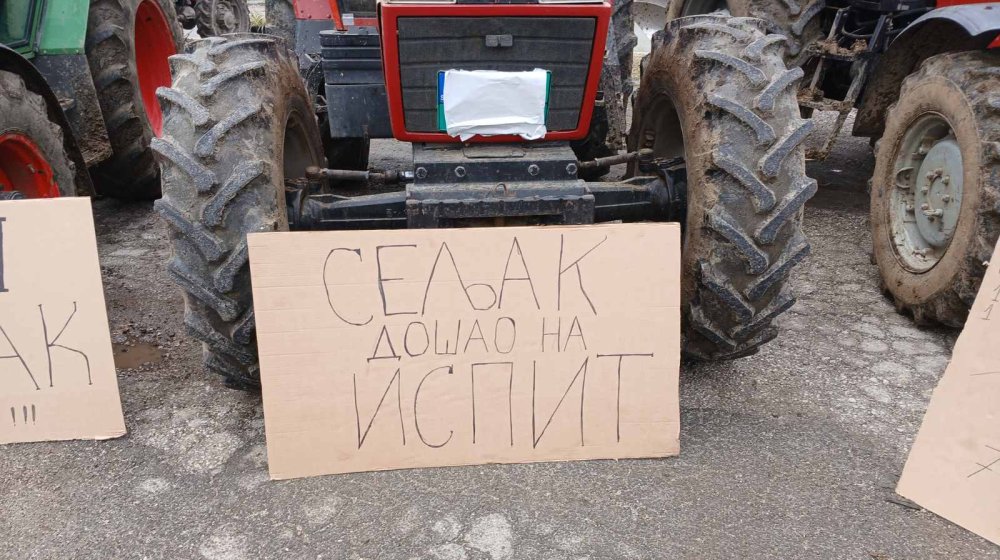 СЕЉАК
ДОШАО НА
ИСПИТ
АК
!!!